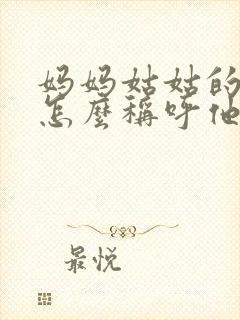 妈妈姑姑的
怎麼稱呼他
最悦